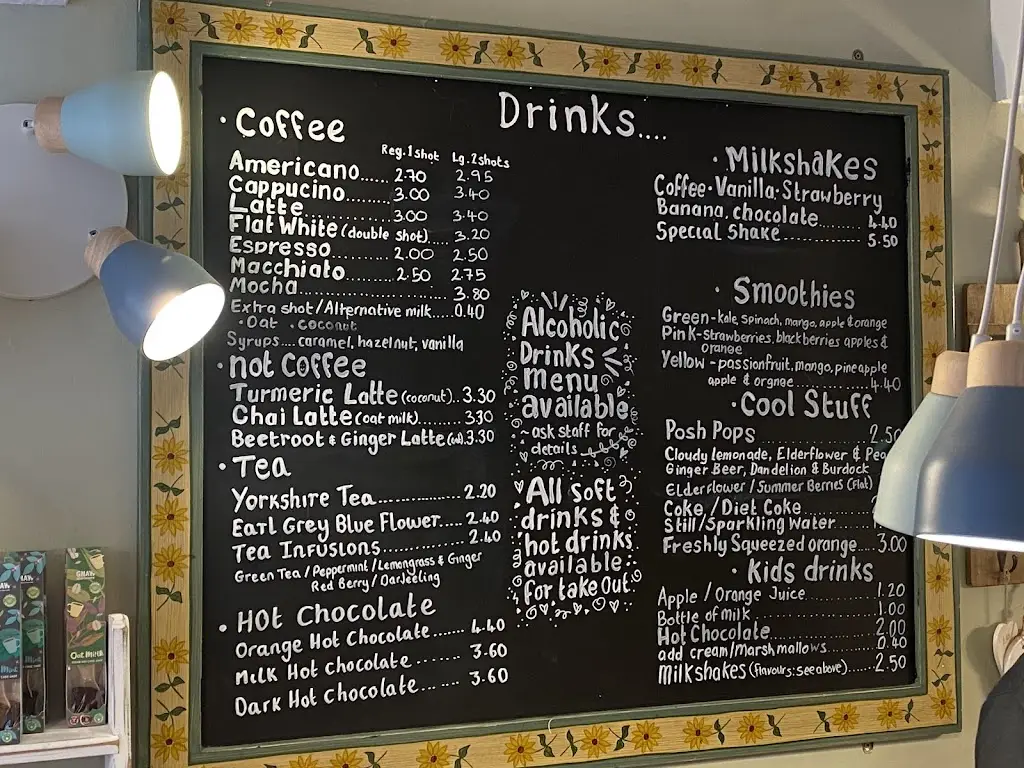 Drinks....
· Coffee
Reg. 1 shot Lg. 2 shots
Americano..... 2.70 2.95
Cappucino........ 3.00 3.40
Latte............ 3.00 3.40
Flat White (double shot).... 3.20
Espresso......... 2.00 2.50
Macchiato....... 2.50 2.75
Mocha................ 3.80
Extra shot / Alternative milk.....0.40
· Oat . coconut
Syrups.... caramel, hazelnut, vanilla
· not coffee
Turmeric Latte (coconut).. 3.30
Chai Latte (oat milk)...... 3.30
Beetroot & Ginger Latte 3.30
· Tea
Yorkshire Tea................ 2.20
Earl Grey Blue Flower..... 2.40
Tea Infusions............... 2.40
Green Tea / Peppermint / Lemongrass & Ginger
Red Berry / Darjeeling
· Hot Chocolate
Orange Hot Chocolate....... 4.40
Milk Hot Chocolate ....... 3.60
Dark Hot Chocolate....... 3.60
Alcoholic
Drinks
menu
available
~ask staff for
details
All soft
drinks &
hot drinks
available
for take out.
· Milkshakes
Coffee · Vanilla · Strawberry
Banana, chocolate.......... 4.40
Special Shake................ 5.50
· Smoothies
Green - kale, spinach, mango, apple & orange
Pink - strawberries, blackberries apples &
orange
Yellow - passionfruit, mango, pineapple
apple & orgnge ............... 4.40
· Cool Stuff
Posh Pops .................. 2.50
Cloudy lemonade, Elderflower &
Ginger Beer, Dandelion & Burdock
Elderflower / Summer Berries (Flat)
Coke / Diet Coke
Still / Sparkling Water
Freshly Squeezed orange.... 3.00
· Kids drinks
Apple / Orange Juice.......... 1.20
Bottle of milk................ 1.00
Hot Chocolate................ 2.00
add cream/marshmallows....... 0.40
milkshakes (flavours: see above).... 2.50
Oat Milk